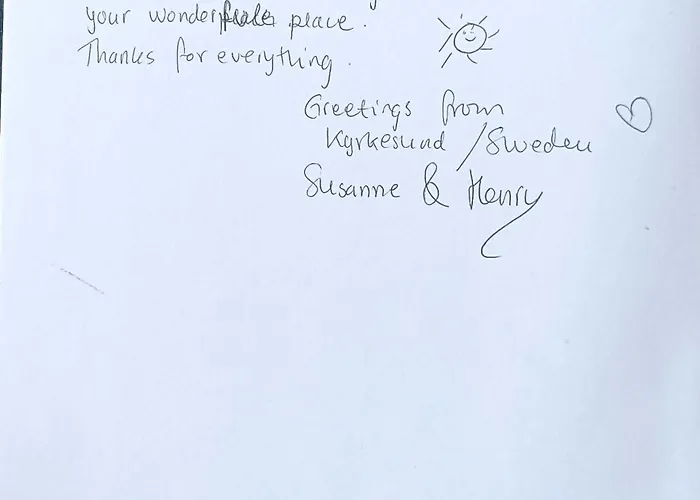 your wonder place.
Thanks for everything.
Greetings from
Kyrkesund / Sweden
Susanne & Henry